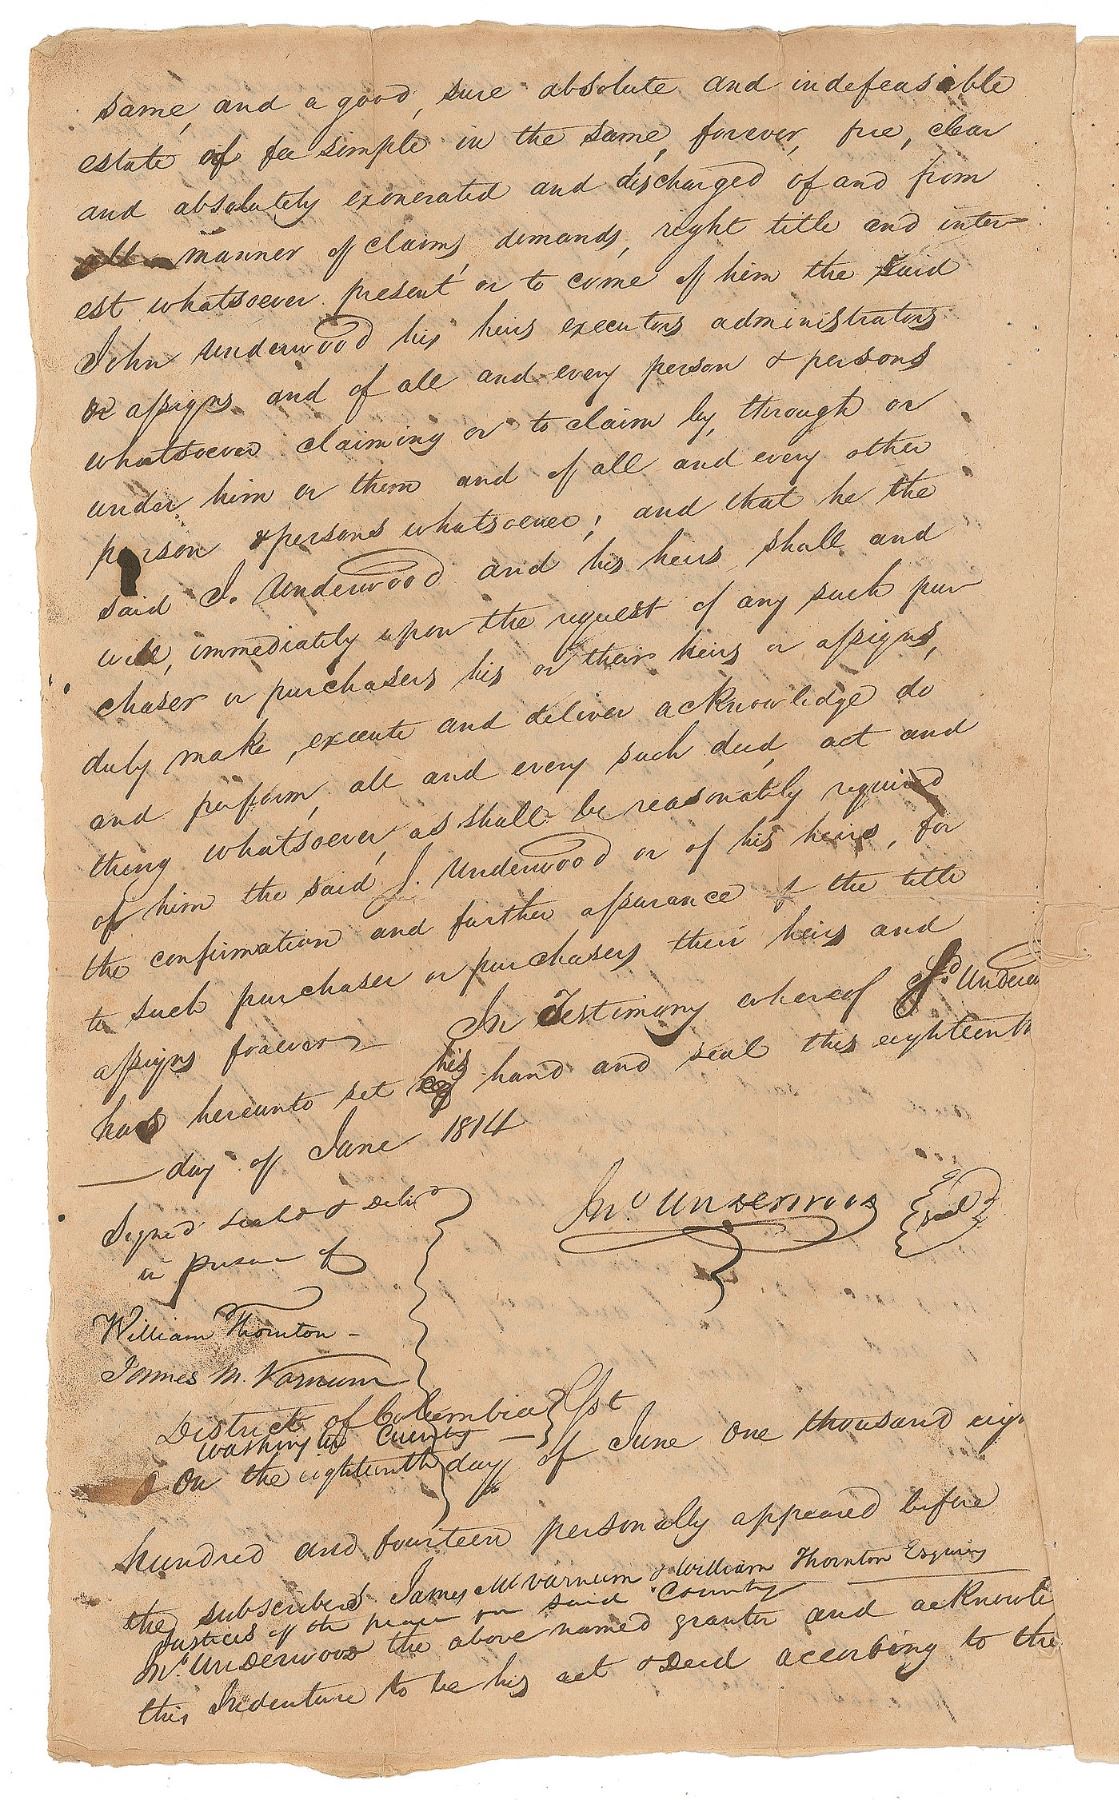 same, and a good, sure absolute and indefeasible
estate of fee simple in the same, forever, free, clear
and absolutely exonerated and discharged of and from
all manner of claims, demands, right title and inter
est whatsoever present or to come of him the said
John Underwood his heirs executors administrators
or assigns and of all and every person & persons
whatsoever claiming or to claim by, through or
under him or them and of all and every other
person & persons whatsoever; and that he the
said J. Underwood and his heirs shall and
will, immediately upon the request of any such pur
chaser or purchasers his or their heirs or assigns,
duly make, execute and deliver acknowledge do
and perform, all and every such deed, act and
thing whatsoever, as shall be reasonably required
of him the said J. Underwood or of his heirs, for
the confirmation and further assurance of the title
to such purchaser or purchasers their heirs and
assigns forever In Testimony whereof Sd. Underw
has hereunto set his hand and seal this eighteenth
day of June 1814
Signed sealed & delivd
in presence of
Jno. Underwood seal
William Thornton
James M. Varnum
District of Columbia
Washington County
On the eighteenth day of June One thousand eig
hundred and fourteen personally appeared before
the subscribers James M Varnum & William Thornton Esquires
Justices of the peace for said County
Jno. Underwood the above named grantor and acknowle
this Indenture to be his act & Deed according to the